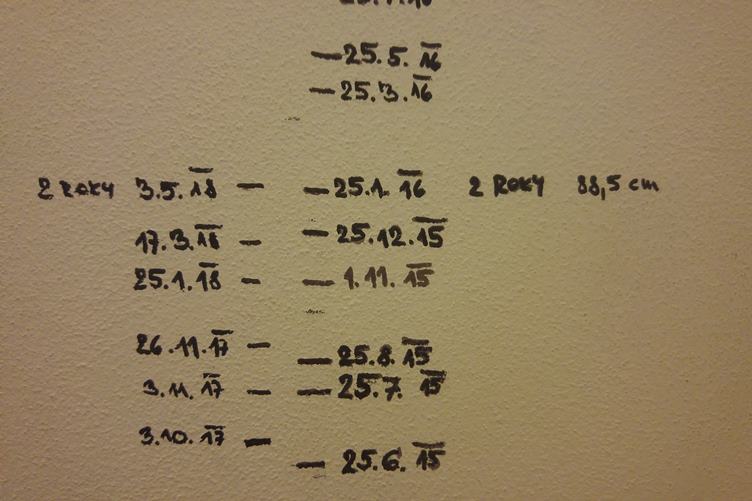 25.5.16
25.3.16
2 ROKY 3.5.18 – – 25.1.16 2 ROKY 88,5 cm
17.3.18 – – 25.12.15
25.1.18 – – 1.11.15
26.11.17 –
– 25.8.15
3.11.17 – – 25.7.15
3.10.17 –
– 25.6.15